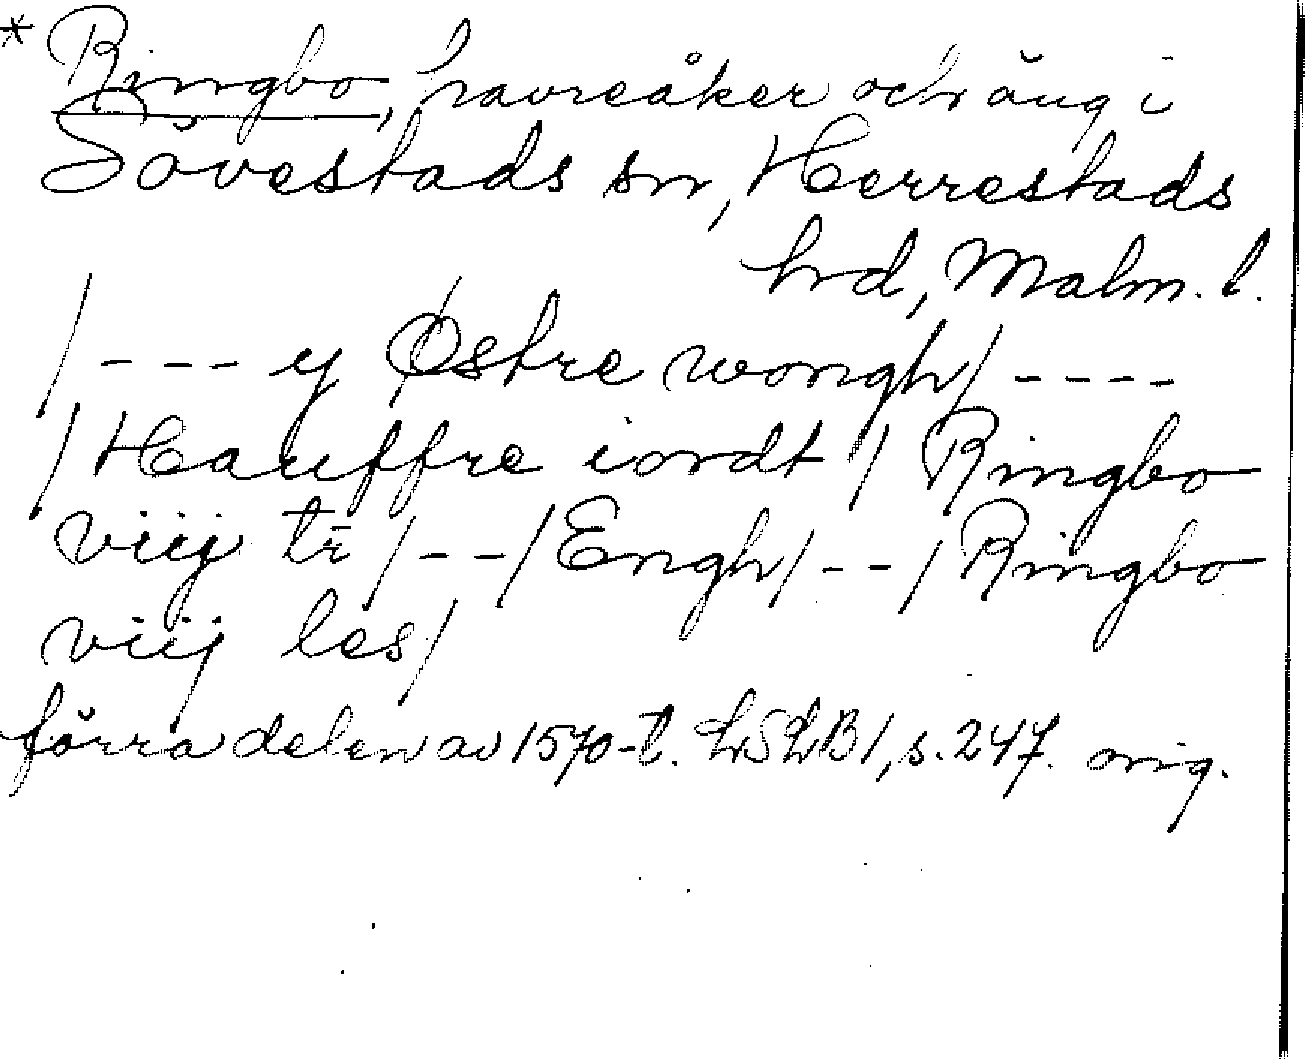 * Ringbo, havreåker och äng i
Sövestads sn, Herrestads
hrd, Malm. l.
/ - - - y Østre wongh / - - - -
/ Hauffre iordt / Ringbo
viij tr̄ / - - / Engh / - - / Ringbo
viij les /
förra delen av 1570-t. LSLB 1, s. 247. orig.